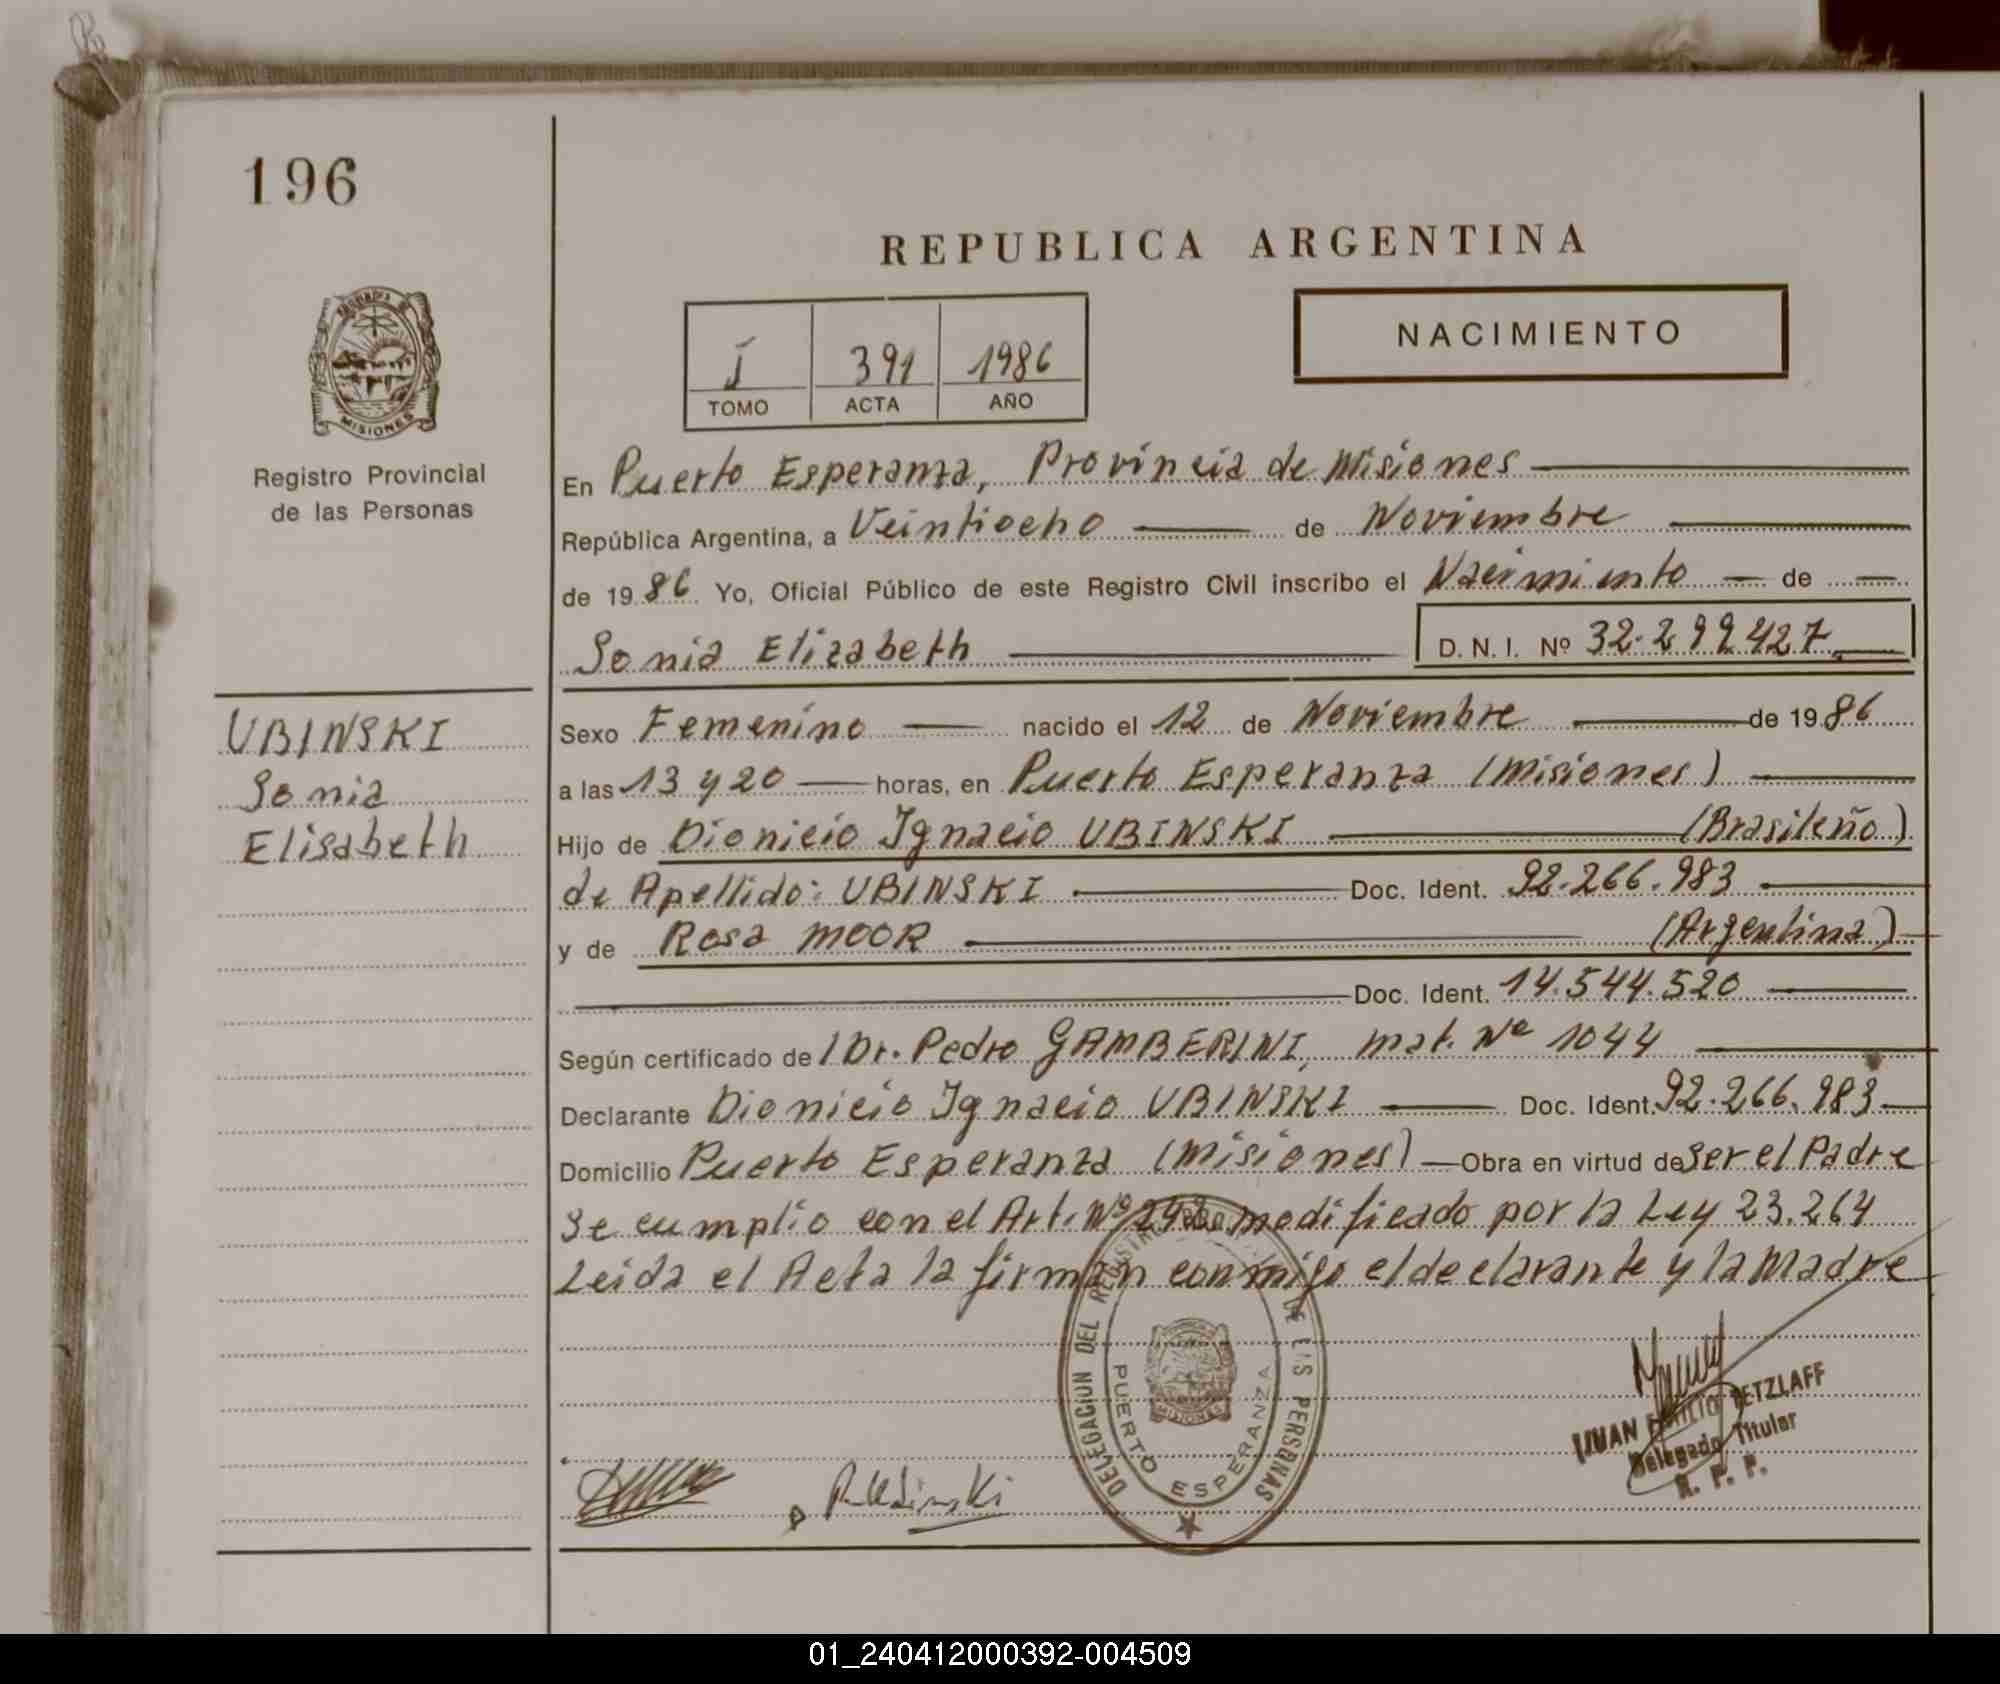 196
REPUBLICA ARGENTINA
NACIMIENTO
I 391 1986
TOMO ACTA AÑO
MISIONES
Registro Provincial
de las Personas
En Puerto Esperanza, Provincia de Misiones
República Argentina, a Veintiocho de Noviembre
de 1986 Yo, Oficial Público de este Registro Civil inscribo el Nacimiento de
Sonia Elizabeth D.N.I. Nº 32.299.427
UBINSKI
Sonia
Elisabeth
Sexo Femenino nacido el 12 de Noviembre de 1986
a las 13 y 20 horas, en Puerto Esperanza (Misiones)
Hijo de Dionicio Ignacio UBINSKI (Brasileño)
de Apellido: UBINSKI Doc. Ident. 92.266.983
y de Rosa MOOR (Argentina)
Doc. Ident. 14.544.520
Según certificado de Dr. Pedro GAMBERINI, mat. Nº 1044
Declarante Dionicio Ignacio UBINSKI Doc. Ident. 92.266.983
Domicilio Puerto Esperanza (Misiones) Obra en virtud de ser el Padre
Se cumplio con el Art. Nº modificado por la Ley 23.264
Leida el Acta la firman conmigo el declarante y la Madre
DELEGACION DEL REGISTRO DE LAS PERSONAS
PUERTO ESPERANZA
MISIONES
JUAN EMILIO PETZLAFF
Delegado Titular
R. P. P.
01_240412000392-004509